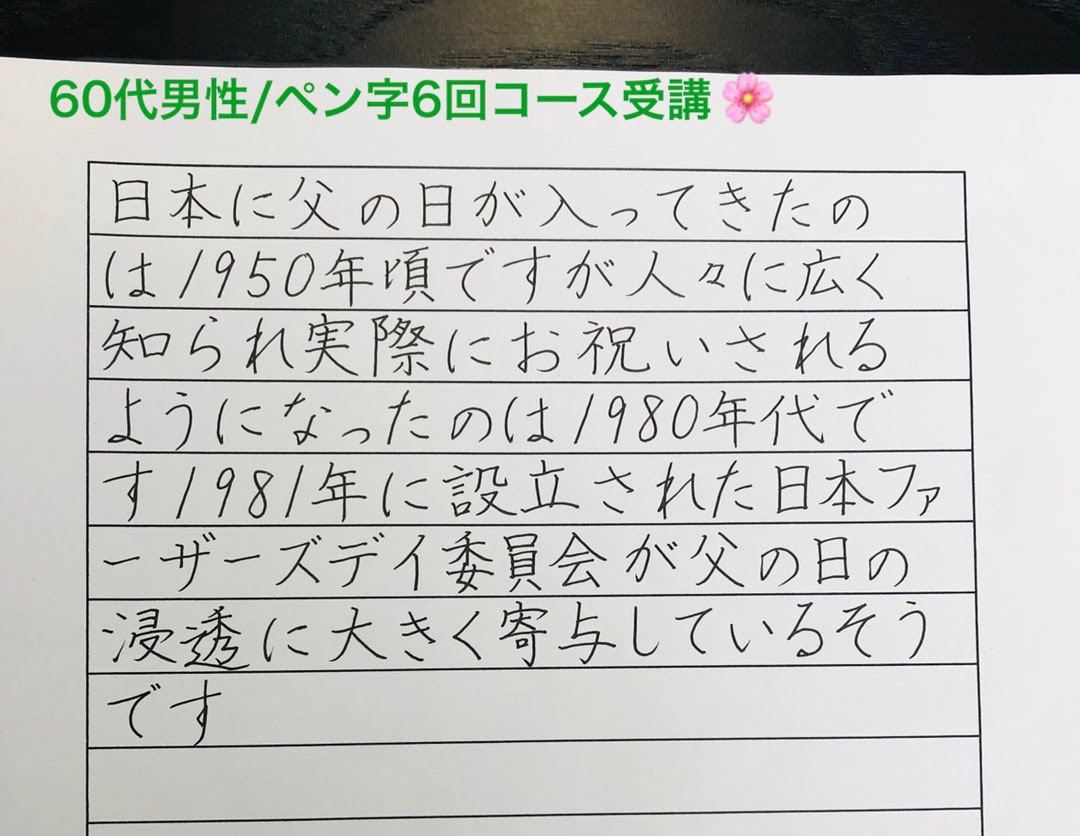 60代男性/ペン字6回コース受講🌸
日本に父の日が入ってきたの
は1950年頃ですが人々に広く
知られ実際にお祝いされる
ようになったのは1980年代で
す1981年に設立された日本ファ
ーザーズデイ委員会が父の日の
浸透に大きく寄与しているそう
です